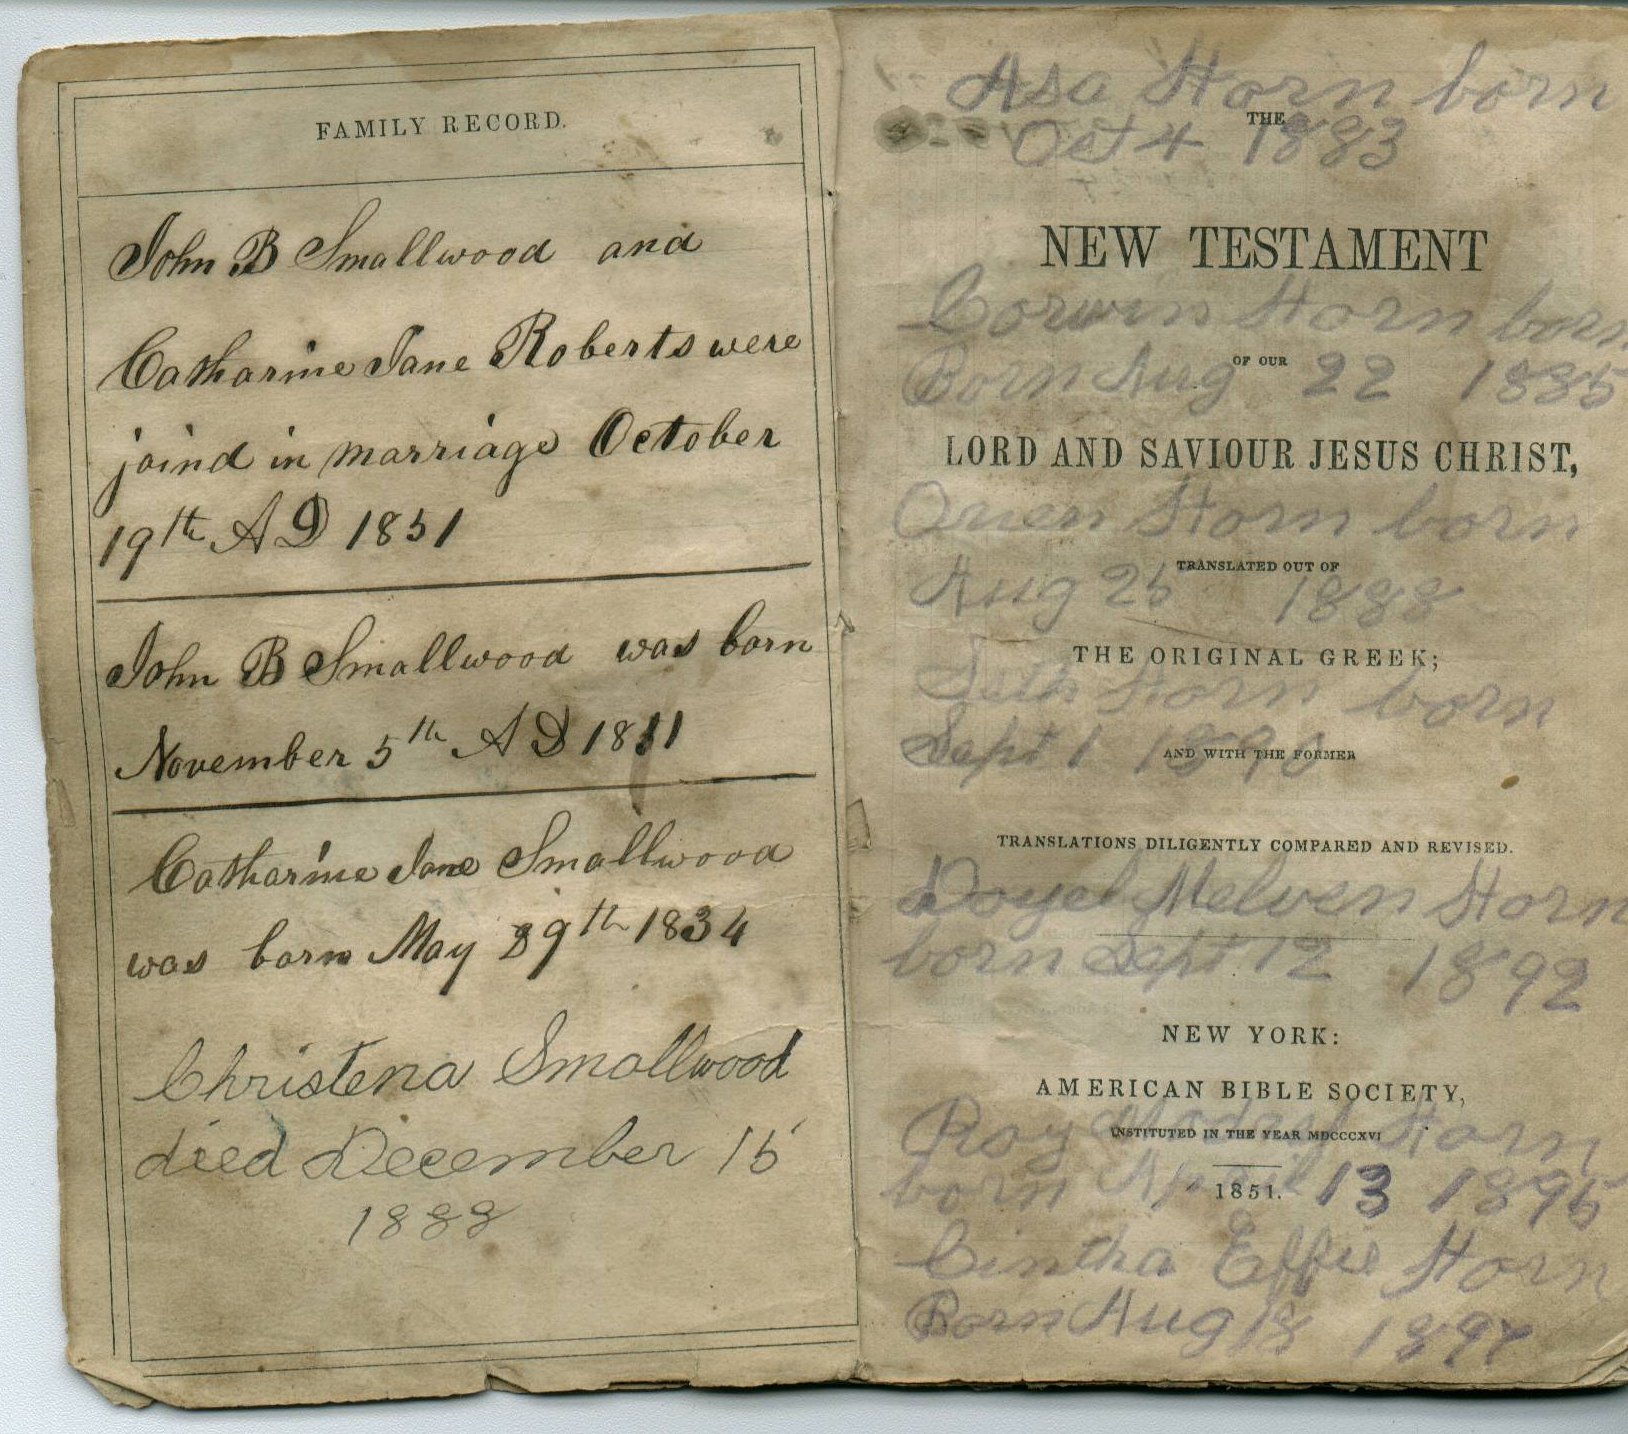 FAMILY RECORD.
John B Smallwood and
Catharine Jane Roberts were
joind in marriage October
19th AD 1851
John B Smallwood was born
November 5th AD 1811
Catharine Jane Smallwood
was born May 29th 1834
Christena Smallwood
died December 15
1888
Asa Horn born
THE
Oct 4 1883
NEW TESTAMENT
Corwin Horn born
OF OUR
Born Aug 22 1885
LORD AND SAVIOUR JESUS CHRIST,
Orien Horn born
TRANSLATED OUT OF
Aug 25 1888
THE ORIGINAL GREEK;
Seth Horn born
Sept 1 1890
AND WITH THE FORMER
TRANSLATIONS DILIGENTLY COMPARED AND REVISED.
Doyel Melven Horn
born Sept 12 1892
NEW YORK:
AMERICAN BIBLE SOCIETY,
Roy Horn
INSTITUTED IN THE YEAR MDCCCXVI
born April 13 1895
1851.
Cintha Effie Horn
Born Aug 18 1897